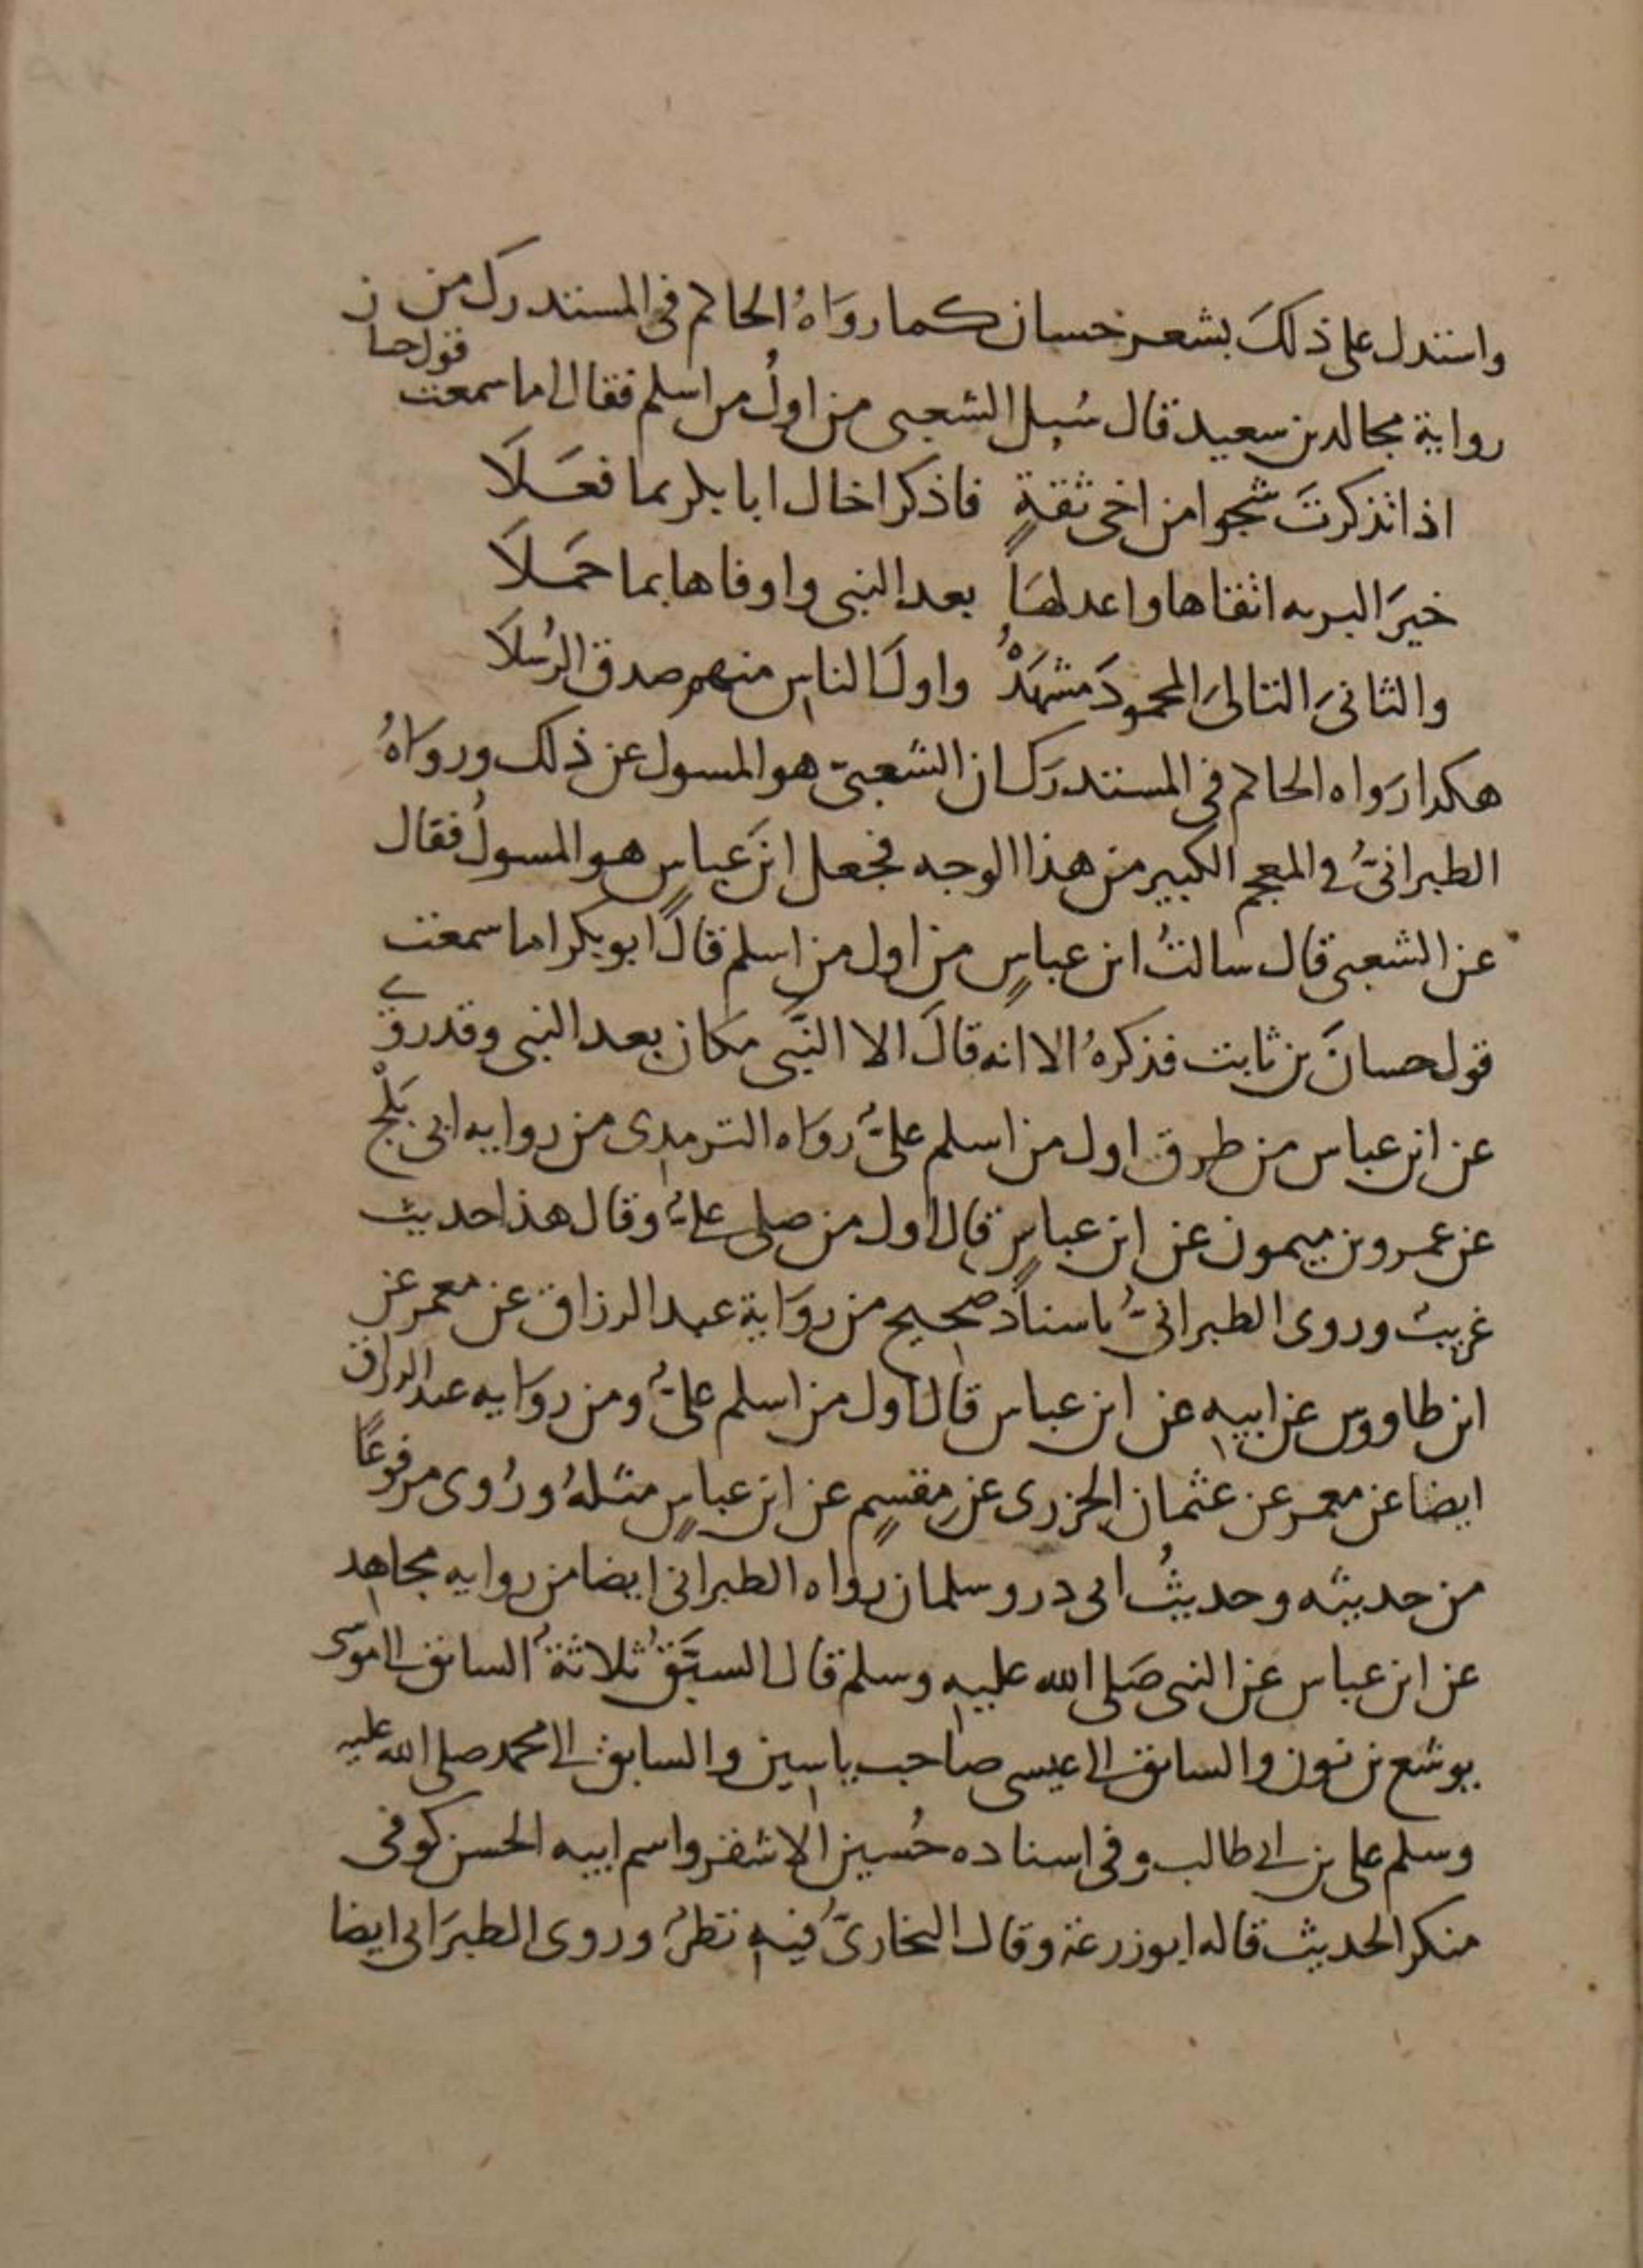 واستدل على ذلك بشعر حسان كما رواه الحاكم في المستدرك من
رواية مجالد بن سعيد قال سُيل الشعبي من اولُ من اسلم فقال اما سمعت قول حسان
اذا تذكرتَ شجوا من اخي ثقةٍ فاذكر اخاك ابا بكر بما فعَلَا
خيرَ البريه اتقاها واعدلهَا بعد النبي واوفاها بما حَمَلَا
والثانيَ التاليَ المحمودَ مشهَدُهُ واولَ الناسِ منهم صدق الرُسُلَا
هكدا رَواه الحاكم في المستدرَك ان الشعبيّ هو المسول عن ذلك ورَواهُ
الطبرانيُّ في المعجم الكبير من هذا الوجه فجعل ابنَ عباسٍ هو المسولُ فقال
عن الشعبي قال سالتُ ابن عباسٍ من اول من اسلم قالَ ابو بكر اما سمعت
قول حسانَ بن ثابت فذكرهُ الا انه قالَ الا النَّبي مكان بعد النبي وقد روي
عن ابن عباس من طرق اول من اسلم عليٌّ رَواه الترمدي من روايه ابي بَلْج
عن عمرو بن ميمون عن ابن عباسٍ قال اول من صلى عليٌّ وقال هذا حديث
غريب وروى الطبرانيُّ باسنادٍ صحيح من روَاية عبد الرزاق عن معمر عن
ابن طاووس عن ابيهِ عن ابن عباس قال اول من اسلم عليٌّ ومن روَايه عبد الرزاق
ايضا عن معمر عن عثمان الجزري عن مِقسمٍ عن ابن عباسٍ مثلهُ ورُوى مرفوعًا
من حديثه وحديثُ ابي در وسلمان رواه الطبراني ايضا من روايه مجاهدٍ
عن ابن عباس عن النبي صَلى الله عليهِ وسلم قال السبَّقُ ثلاثةٌ السابق الى موسَى
يوشع بن نون والسابق الى عيسى صاحب ياسين والسابق الى محمد صلى الله عليه
وسلم على بن ابي طالب وفي اسناده حُسين الاشقر واسم ابيه الحسن كوفي
منكر الحديث قاله ابو زرعة وقال البخاريُّ فيهِ نظرٌ وروى الطبرَاني ايضا